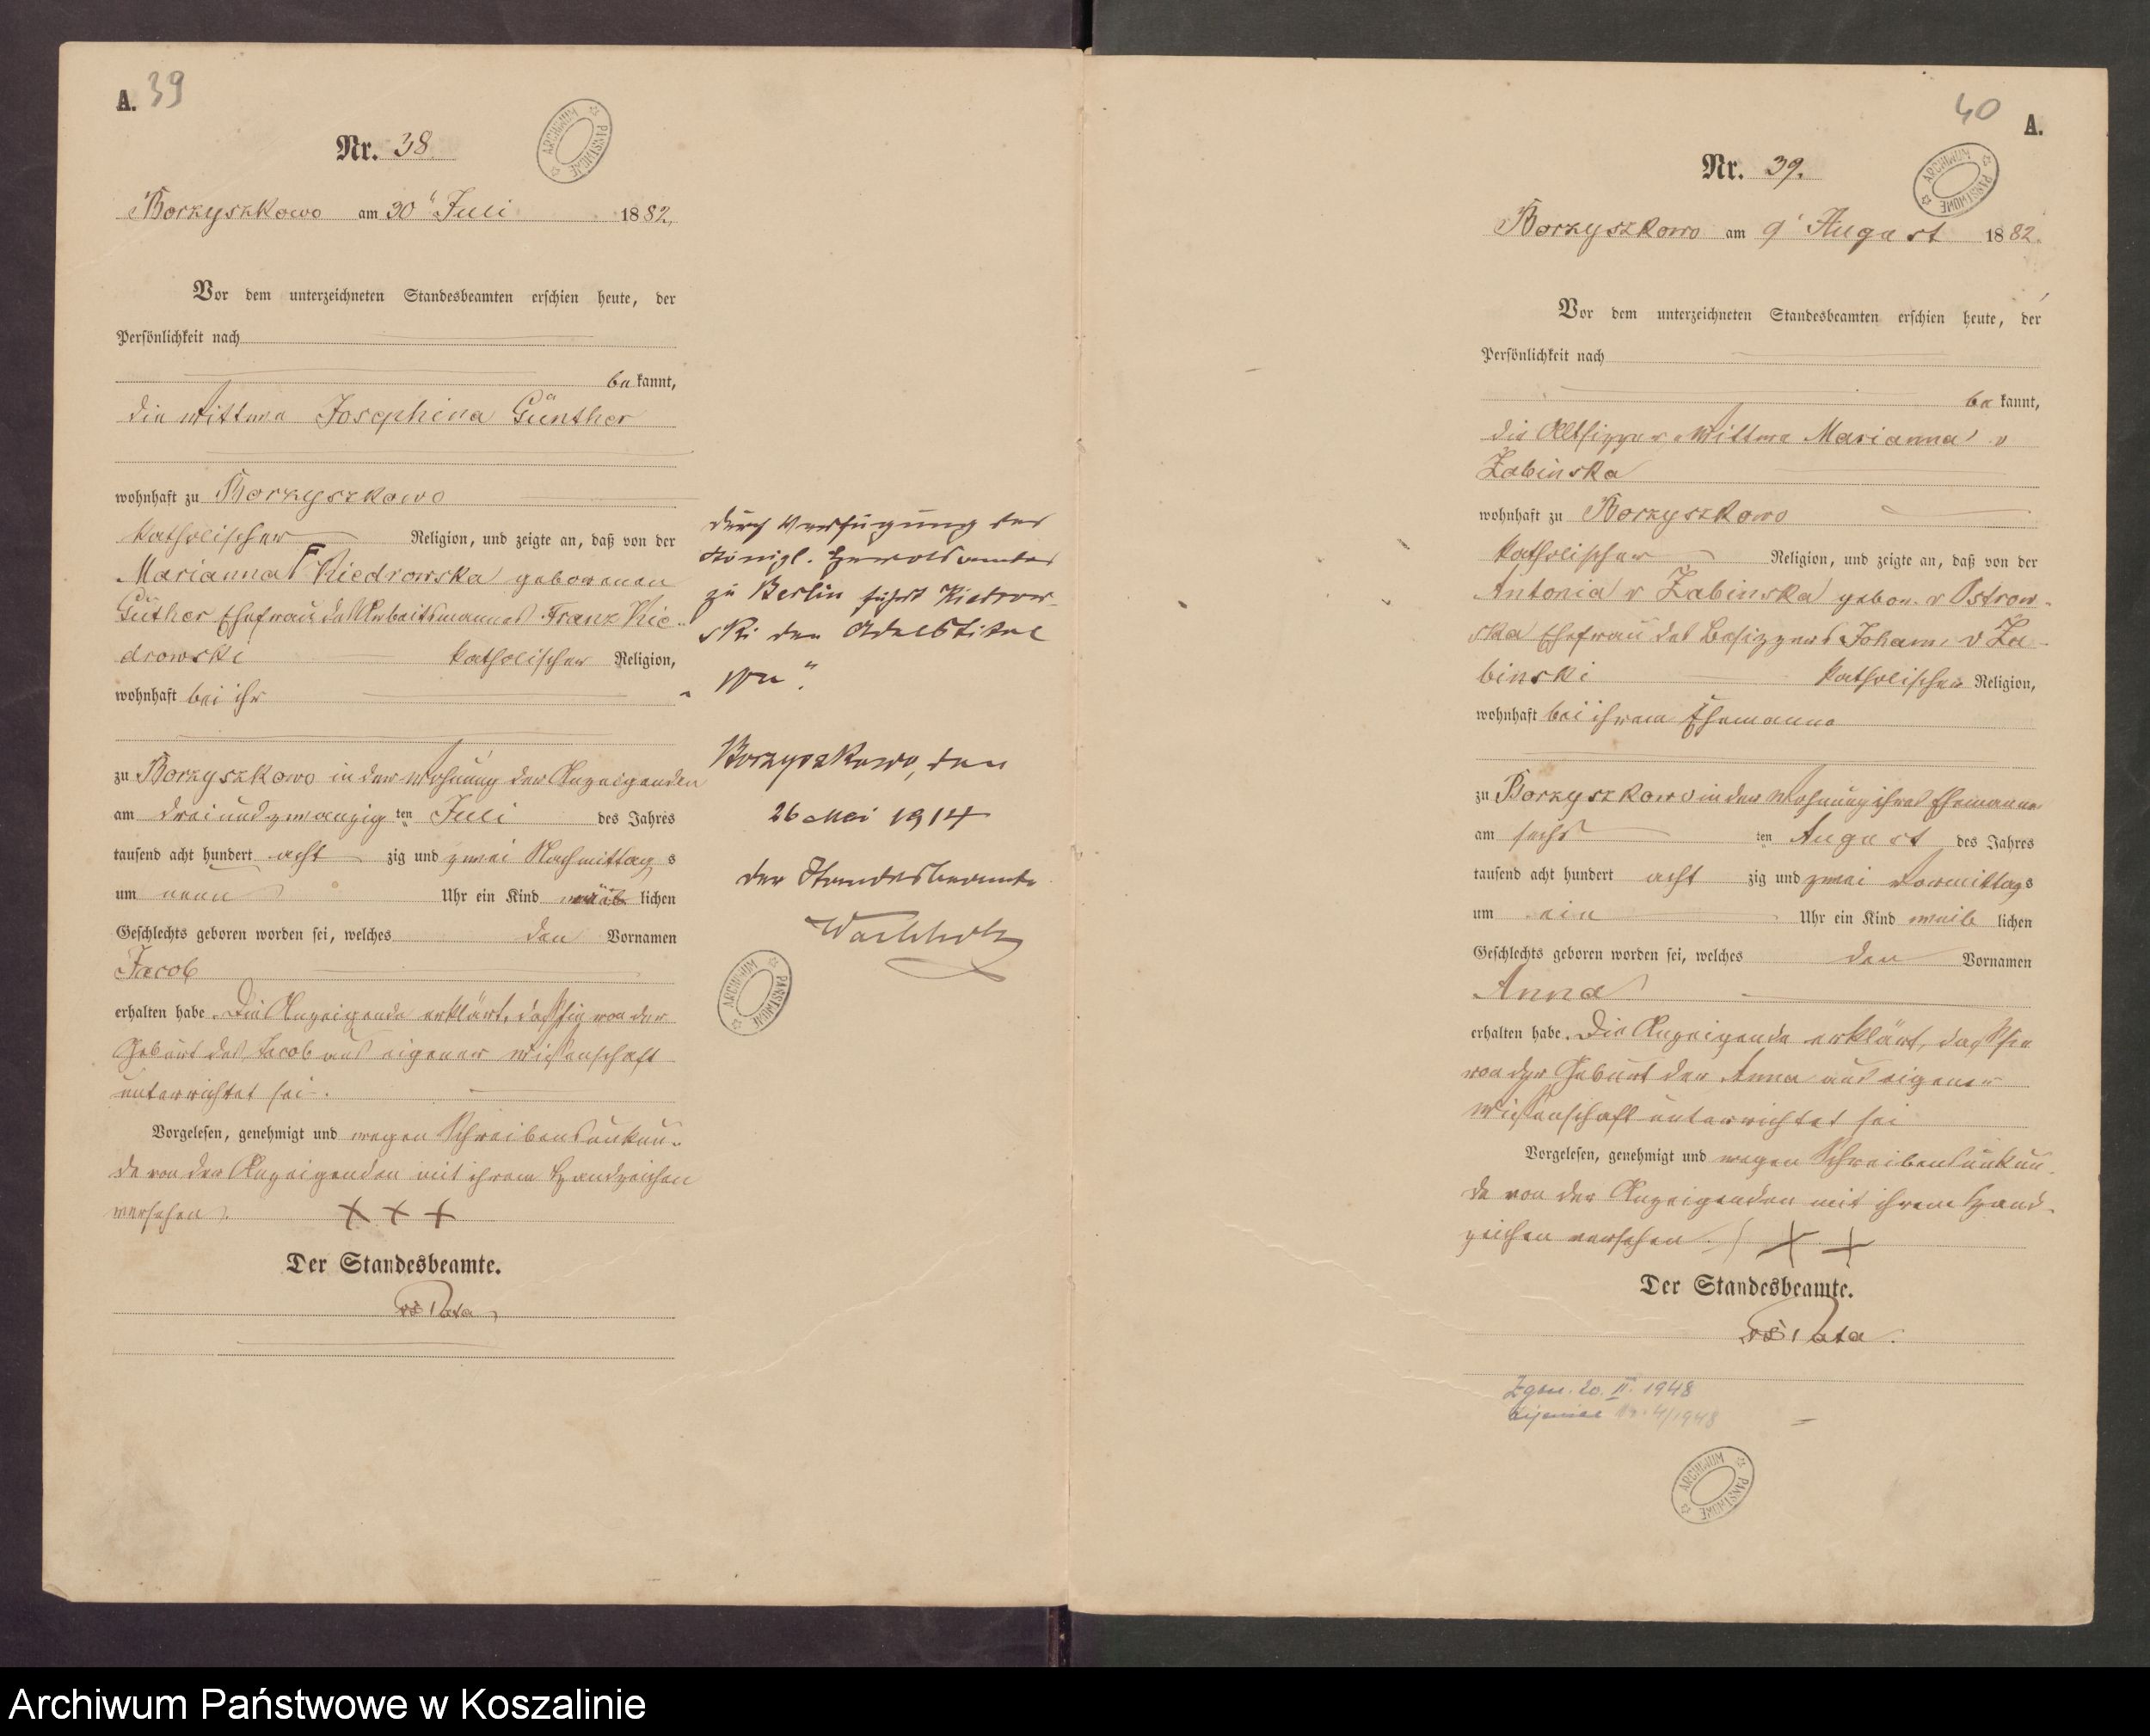 A. 39
Nr. 38
ARCHIWUM PAŃSTWOWE
Borzyszkowo am 30ᵗ Juli 1882,
Vor dem unterzeichneten Standesbeamten erschien heute, der
Persönlichkeit nach
be kannt,
die Wittwe Josephina Günther
wohnhaft zu Borzyszkowo
katholischer Religion, und zeigte an, daß von der
Marianna Kiedrowska geborenen
Güther Ehefrau des Arbeitsmannes Franz Kie-
drowski katholischer Religion,
wohnhaft bei ihr
zu Borzyszkowo in der Wohnung der Anzeigenden
am dreiundzwanzig ten Juli des Jahres
tausend acht hundert acht zig und zwei Nachmittag s
um neun Uhr ein Kind lichen
Geschlechts geboren worden sei, welches den Vornamen
Jacob
erhalten habe. Die Anzeigende erklärt, daß sie von der
Geburt des Jacob aus eigener Wissenschaft
unterrichtet sei.
Vorgelesen, genehmigt und wegen Schreibensunkun-
de von der Anzeigenden mit ihrem Handzeichen
versehen. + + +
Der Standesbeamte.
Durch Verfügung des
Königl. Heroldsamtes
zu Berlin führt Kiedrow-
ski den Adelstitel
"von".
Borzyszkowo, den
26 Mai 1914
der Standesbeamte
ARCHIWUM PAŃSTWOWE
40 A.
Nr. 39.
ARCHIWUM PAŃSTWOWE
Borzyszkowo am 9ᵗ August 1882.
Vor dem unterzeichneten Standesbeamten erschien heute, der
Persönlichkeit nach
be kannt,
die Altsitzer Wittwe Marianna v
Żabinska
wohnhaft zu Borzyszkowo
katholischer Religion, und zeigte an, daß von der
Antonia v Żabinska gebor. v Ostrow-
ska Ehefrau des Besitzers Johann v Za-
binski katholischer Religion,
wohnhaft bei ihrem Ehemanne
zu Borzyszkowo in der Wohnung ihres Ehemannes
am sechs ten August des Jahres
tausend acht hundert acht zig und zwei Vormittag s
um ein Uhr ein Kind weib lichen
Geschlechts geboren worden sei, welches den Vornamen
Anna
erhalten habe. Die Anzeigende erklärt, daß sie
von der Geburt der Anna aus eigener
Wissenschaft unterrichtet sei
Vorgelesen, genehmigt und wegen Schreibensunkun-
de von der Anzeigenden mit ihrem Hand-
zeichen versehen. + +
Der Standesbeamte.
Zgon. 20. II. 1948
Nr. 4/1948
ARCHIWUM PAŃSTWOWE
Archiwum Państwowe w Koszalinie